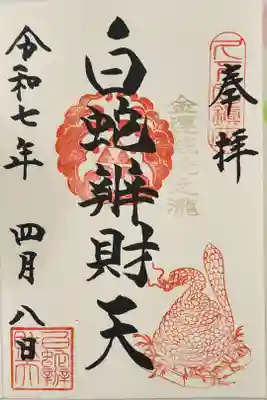 奉拝
白蛇辨財天
令和七年 四月 八日